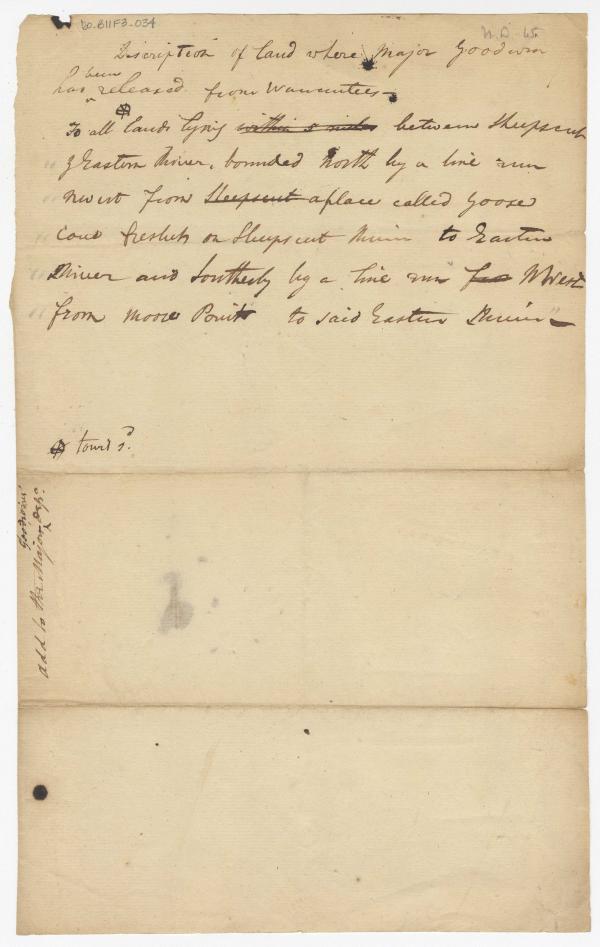 20-B11F3-034
N.D. 45
Discription of land where Major Goodwin
has been released from Warrantees
To all lands lying within 5 miles between Sheepscut
& Eastern River, bounded North by a line run
nwest from Sheepscut a place called Goose
Cove freshets on Sheepscut River to Eastern
River and Southerly by a line run from NWest
from Moore Point to said Eastern River
towd sd.
add to the Major Goodwins Depo.